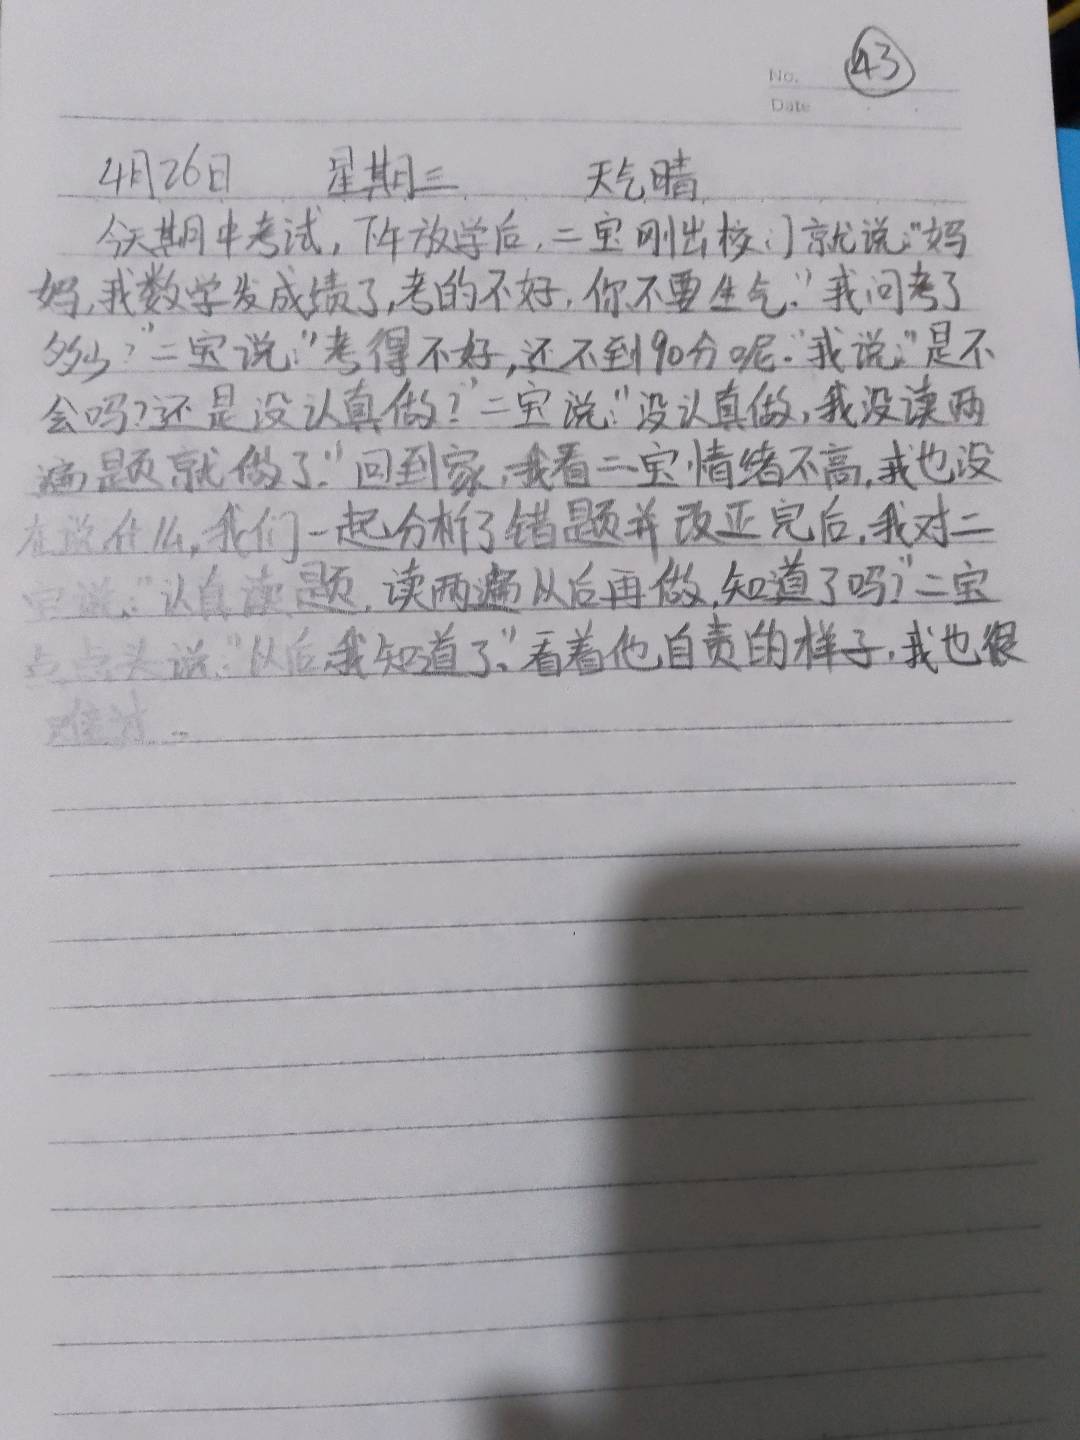 No. 43
Date
4月26日 星期三 天气晴
今天期中考试，下午放学后，二宝刚出校门就说："妈
妈，我数学发成绩了，考的不好，你不要生气。"我问考了
多少？"二宝说："考得不好，还不到90分呢。"我说："是不
会吗？还是没认真做？"二宝说："没认真做，我没读两
遍题就做了。"回到家，我看二宝情绪不高，我也没
在说什么，我们一起分析了错题并改正完后，我对二
宝说："认真读题，读两遍从后再做，知道了吗？"二宝
点点头说："从后我知道了。"看着他自责的样子，我也很
难过..